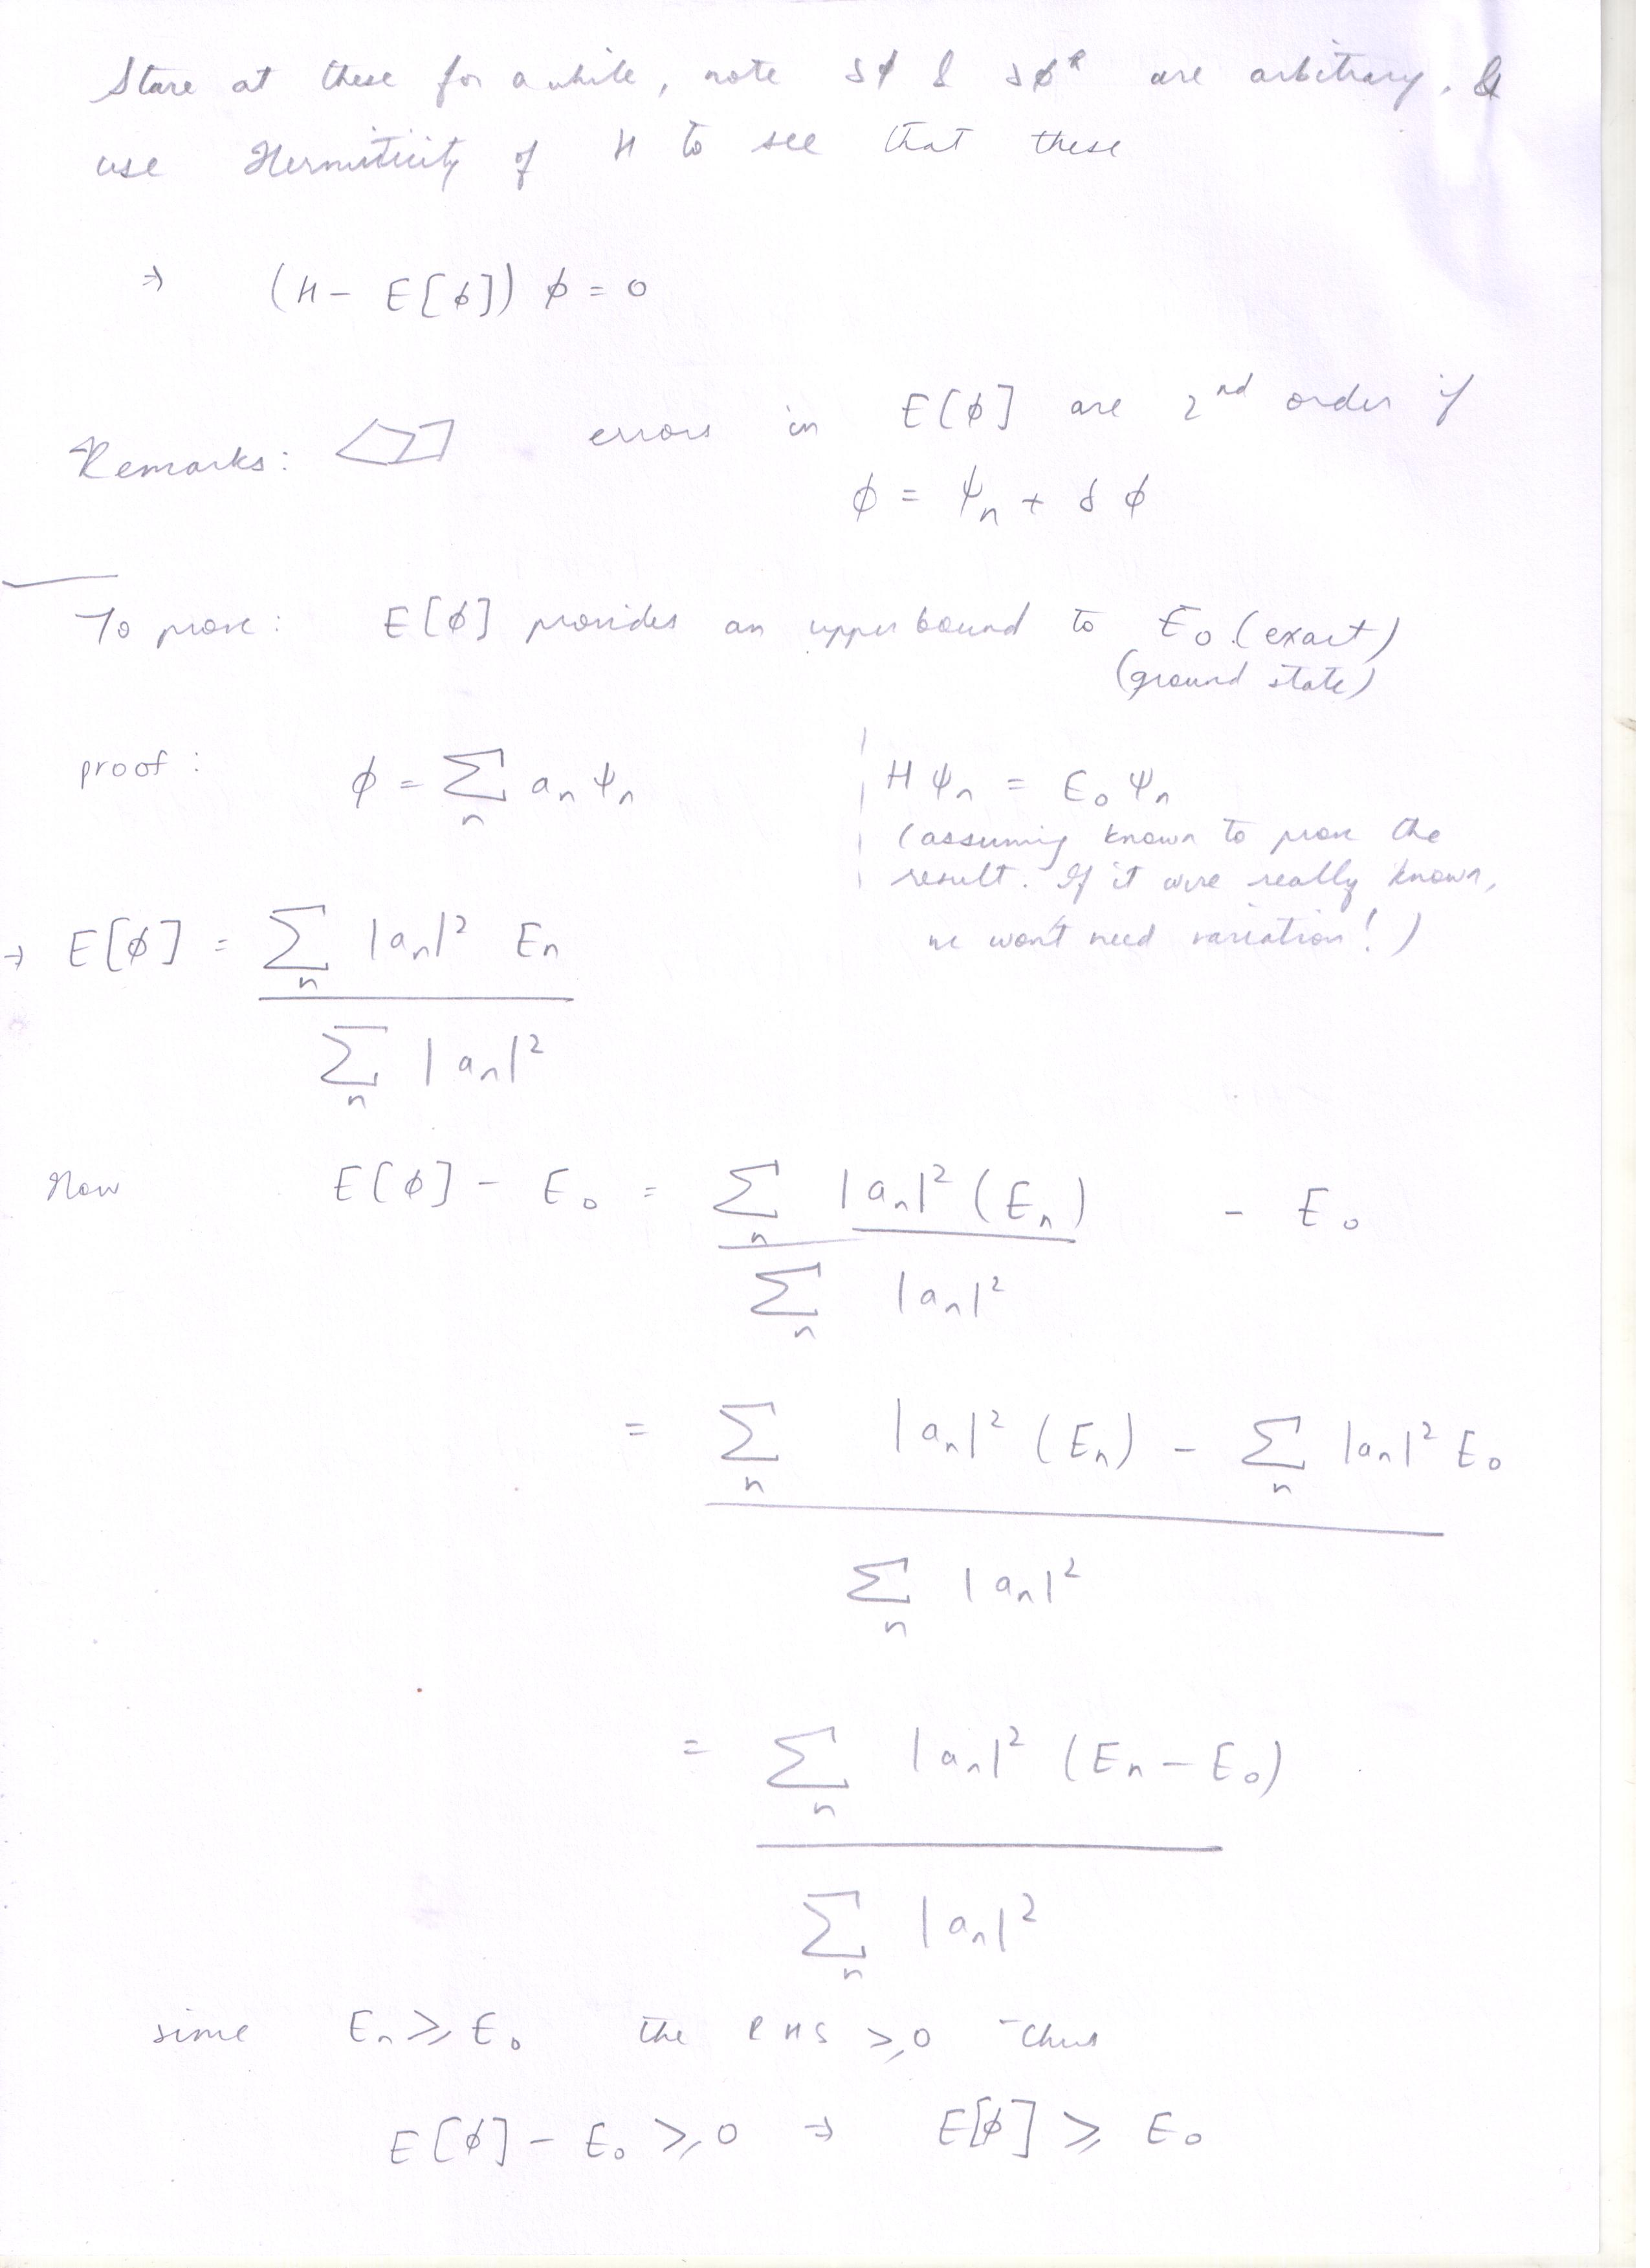 Stare at these for a while, note δϕ & δϕ* are arbitrary, &
use Hermiticity of H to see that these
⇒ (H - E[ϕ]) ϕ = 0
Remarks: errors in E[ϕ] are 2nd order if
ϕ = ψn + δϕ
To prove: E[ϕ] provides an upper bound to E0 (exact)
(ground state)
proof: ϕ = Σn an ψn
Hψn = E0 ψn
(assuming known to prove the
result. If it were really known,
we won't need variation!)
⇒ E[ϕ] = Σn |an|² En
Σn |an|²
Now E[ϕ] - E0 = Σn |an|² (En) - E0
Σn |an|²
= Σn |an|² (En) - Σn |an|² E0
Σn |an|²
= Σn |an|² (En - E0)
Σn |an|²
since En ≥ E0 the RHS ≥ 0 thus
E[ϕ] - E0 ≥ 0 ⇒ E[ϕ] ≥ E0